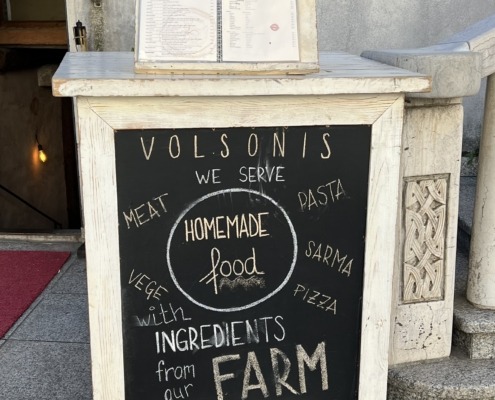 VOLSONIS
WE SERVE
MEAT
PASTA
HOMEMADE
food
SARMA
VEGE
PIZZA
with
INGREDIENTS
from
our
FARM